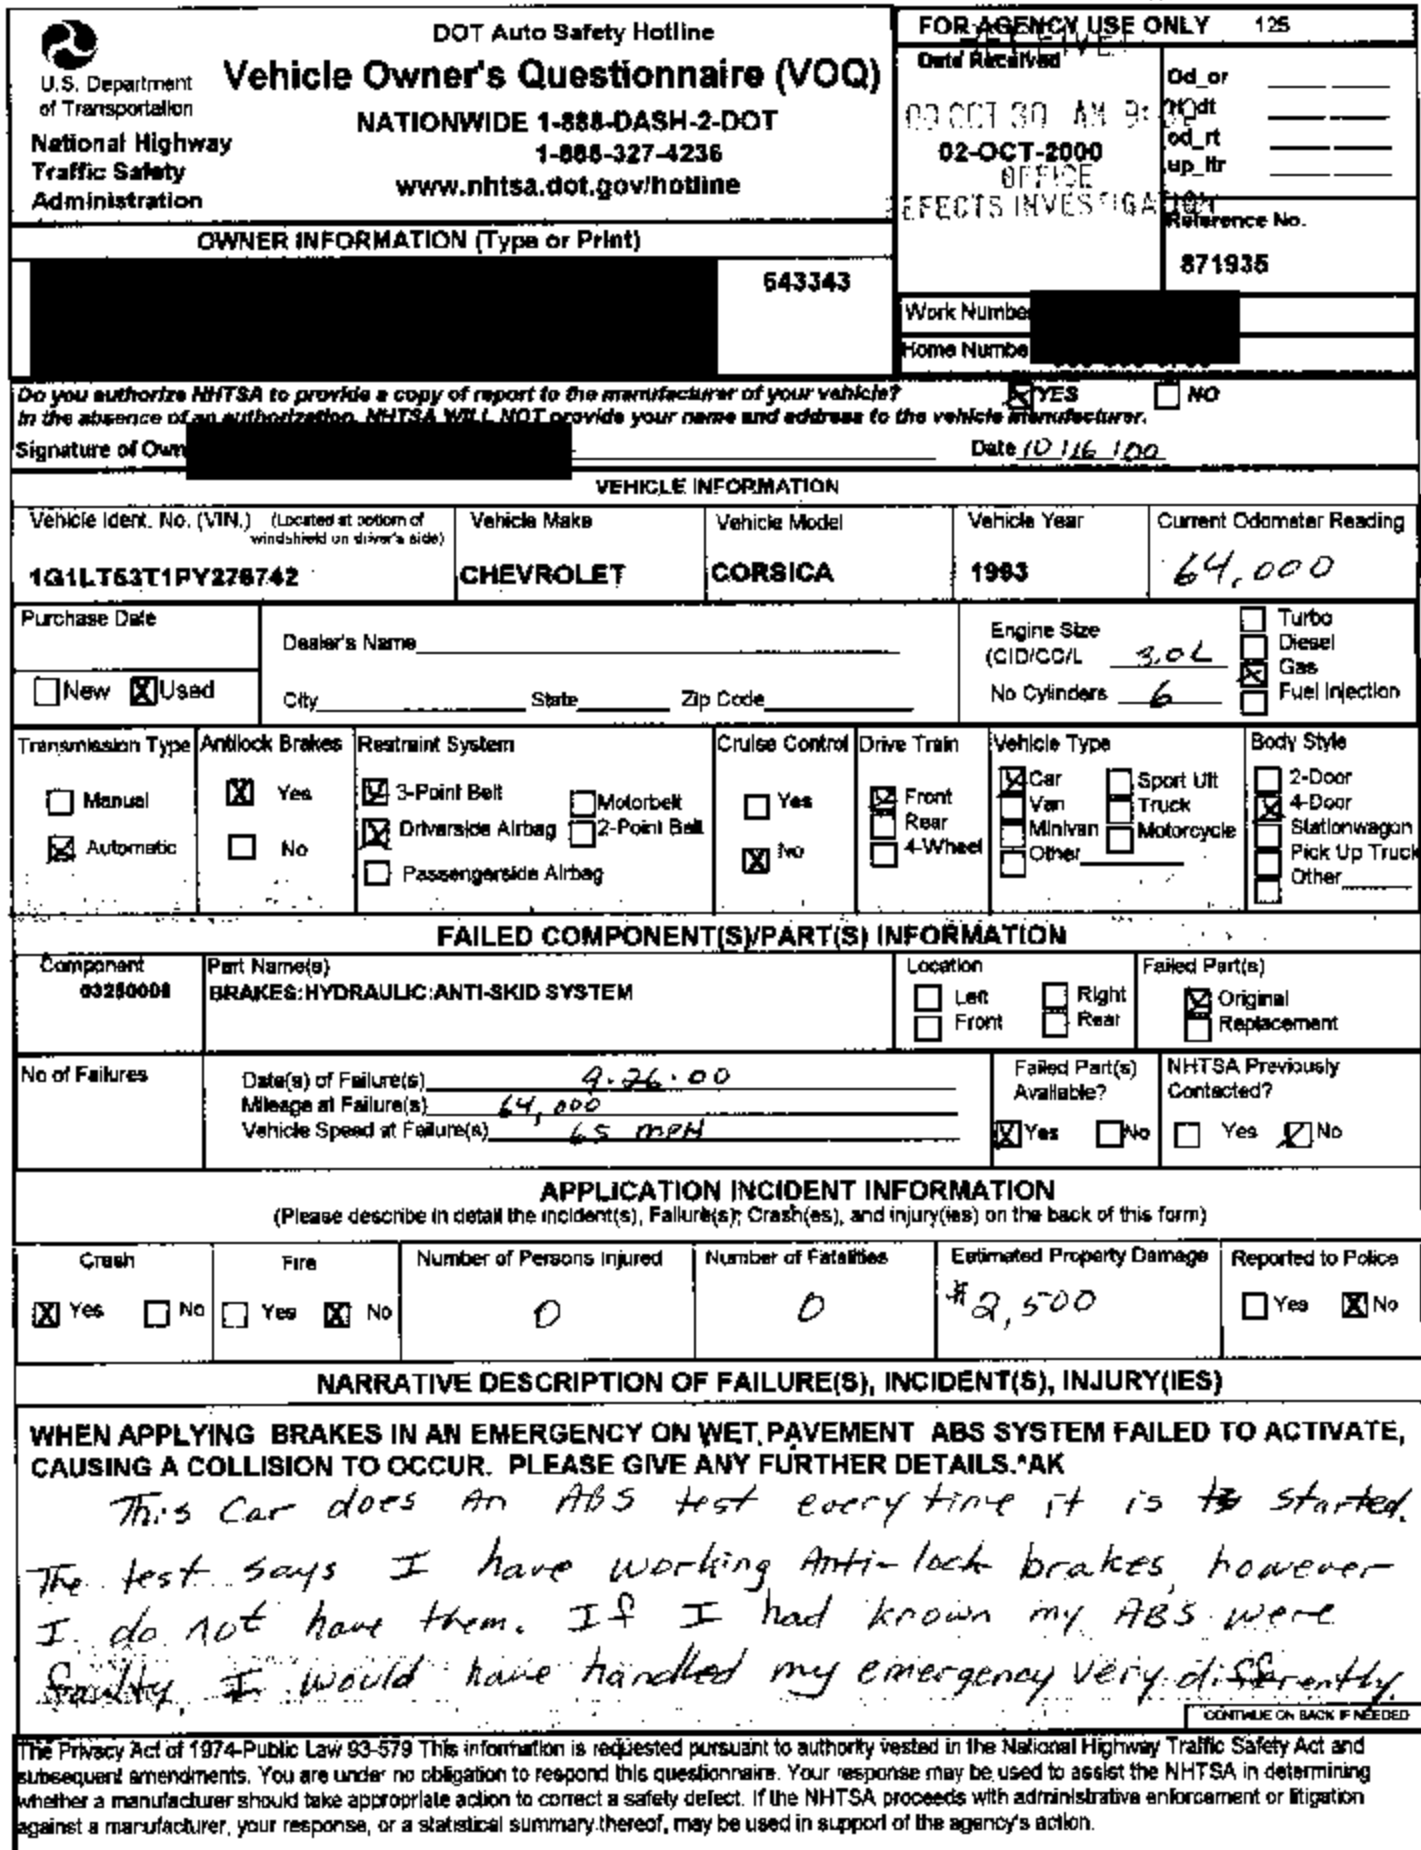 U.S. Department
of Transportation
National Highway
Traffic Safety
Administration
DOT Auto Safety Hotline
Vehicle Owner's Questionnaire (VOQ)
NATIONWIDE 1-888-DASH-2-DOT
1-888-327-4236
www.nhtsa.dot.gov/hotline
FOR AGENCY USE ONLY 125
Date Received
OCT 30 AM
02-OCT-2000
OFFICE
DEFECTS INVESTIGATION
Od_or
od_rt
up_ltr
Reference No.
871935
OWNER INFORMATION (Type or Print)
643343
Work Numbe
Home Numbe
Do you authorize NHTSA to provide a copy of report to the manufacturer of your vehicle? YES NO
In the absence of an authorization, NHTSA WILL NOT provide your name and address to the vehicle manufacturer.
Signature of Own Date 10/16/00
VEHICLE INFORMATION
Vehicle Ident. No. (VIN.) (Located at bottom of
windshield on driver's side)
1G1LT53T1PY276742
Vehicle Make
CHEVROLET
Vehicle Model
CORSICA
Vehicle Year
1993
Current Odometer Reading
64,000
Purchase Date
New Used
Dealer's Name
City State Zip Code
Engine Size
(CID/CC/L 3.0L
No Cylinders 6
Turbo
Diesel
Gas
Fuel Injection
Transmission Type
Manual
Automatic
Antilock Brakes
Yes
No
Restraint System
3-Point Belt Motorbelt
Driverside Airbag 2-Point Belt
Passengerside Airbag
Cruise Control
Yes
No
Drive Train
Front
Rear
4-Wheel
Vehicle Type
Car Sport Utl
Van Truck
Minivan Motorcycle
Other
Body Style
2-Door
4-Door
Stationwagon
Pick Up Truck
Other
FAILED COMPONENT(S)/PART(S) INFORMATION
Component
03250008
Part Name(s)
BRAKES:HYDRAULIC:ANTI-SKID SYSTEM
Location
Left Right
Front Rear
Failed Part(s)
Original
Replacement
No of Failures
Date(s) of Failure(s) 9.26.00
Mileage at Failure(s) 64,000
Vehicle Speed at Failure(s) 65 MPH
Failed Part(s)
Available?
Yes No
NHTSA Previously
Contacted?
Yes No
APPLICATION INCIDENT INFORMATION
(Please describe in detail the incident(s), Failure(s), Crash(es), and injury(ies) on the back of this form)
Crash
Yes No
Fire
Yes No
Number of Persons Injured
0
Number of Fatalities
0
Estimated Property Damage
$2,500
Reported to Police
Yes No
NARRATIVE DESCRIPTION OF FAILURE(S), INCIDENT(S), INJURY(IES)
WHEN APPLYING BRAKES IN AN EMERGENCY ON WET PAVEMENT ABS SYSTEM FAILED TO ACTIVATE,
CAUSING A COLLISION TO OCCUR. PLEASE GIVE ANY FURTHER DETAILS.*AK
This Car does An ABS test every time it is started.
The test says I have working Anti-lock brakes, however
I do not have them. If I had known my ABS were
faulty, I would have handled my emergency very differently.
CONTINUE ON BACK IF NEEDED
The Privacy Act of 1974-Public Law 93-579 This information is requested pursuant to authority vested in the National Highway Traffic Safety Act and
subsequent amendments. You are under no obligation to respond this questionnaire. Your response may be used to assist the NHTSA in determining
whether a manufacturer should take appropriate action to correct a safety defect. If the NHTSA proceeds with administrative enforcement or litigation
against a manufacturer, your response, or a statistical summary thereof, may be used in support of the agency's action.